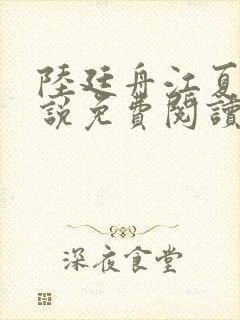 陸廷舟江夏
說免費閱讀
深夜食堂